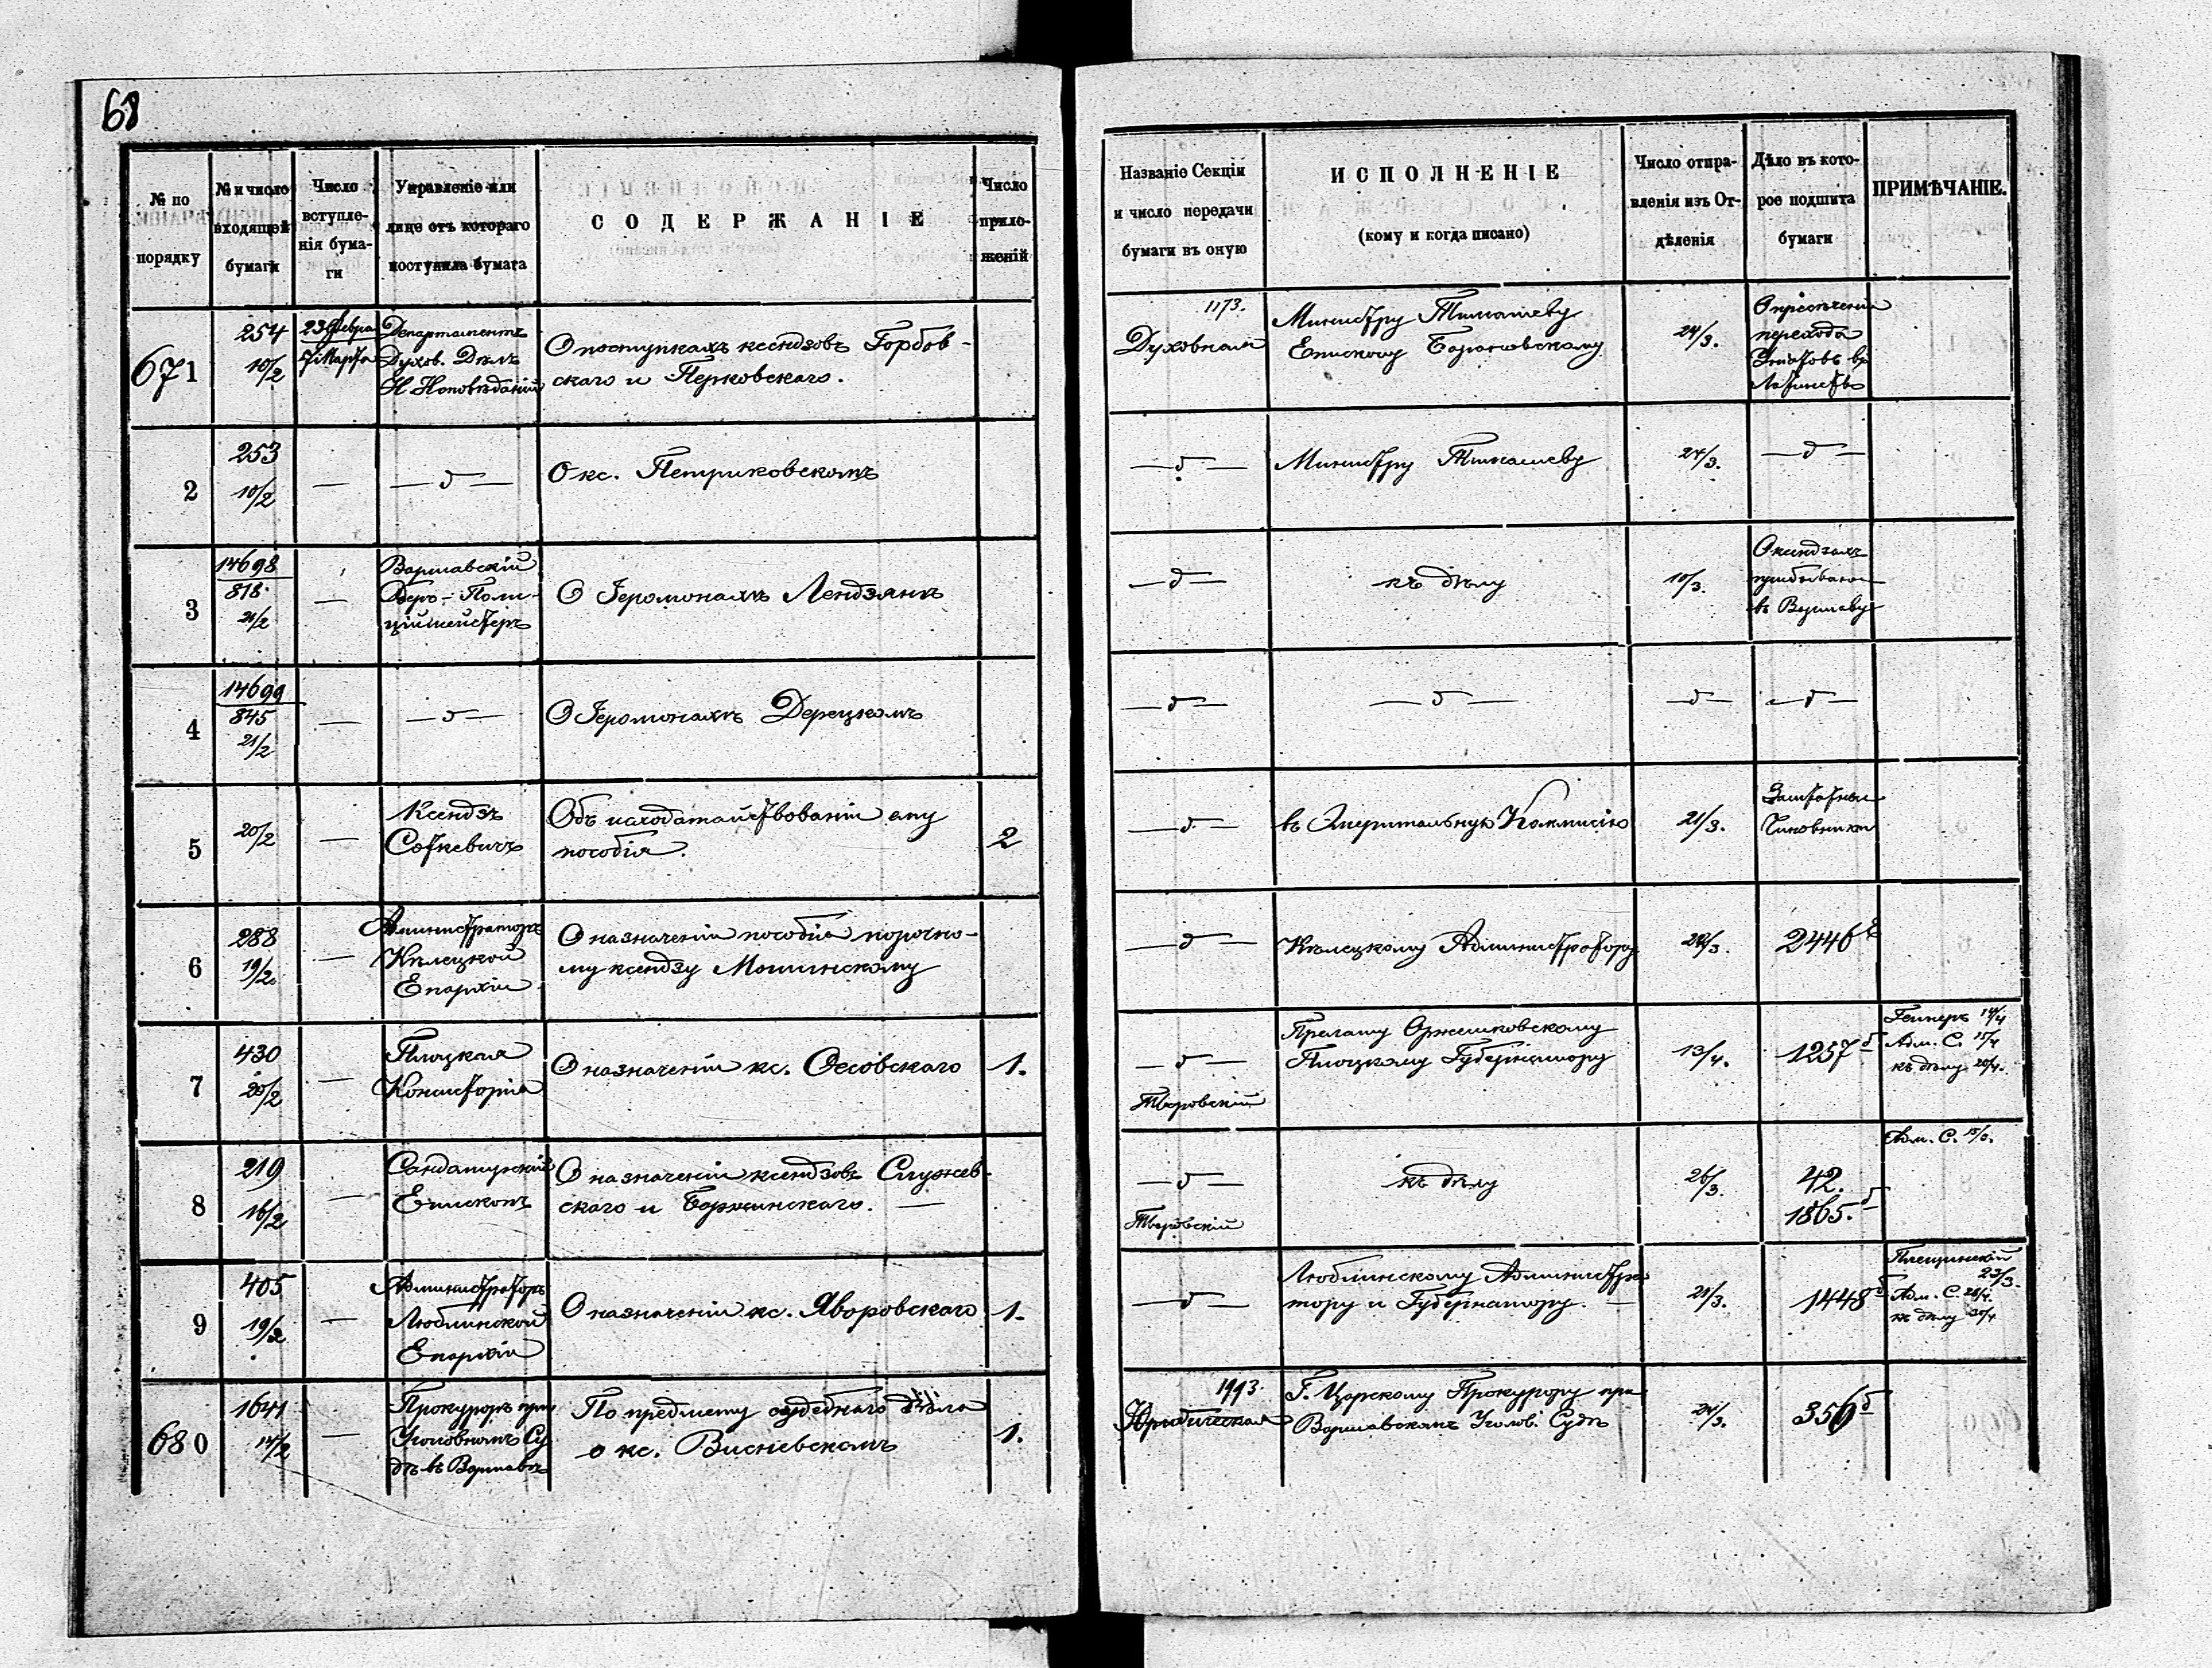 68
№ по порядку
№ и число входящей бумаги
Число вступленія бумаги
Управленіе или лице отъ котораго поступила бумага
СОДЕРЖАНІЕ
Число приложеній
Названіе Секціи и число передачи бумаги въ оную
ИСПОЛНЕНІЕ
(кому и когда писано)
Число отправленія изъ Отдѣленія
Дѣло въ которое подшита бумаги
ПРИМѢЧАНІЕ.
671
254
10/2
23 Февра
7 Марта
Департаментъ
Духов. Дѣлъ
И. Исповѣданій
О поступкахъ ксендзовъ Горбов-
скаго и Перковскаго.
1173.
Духовная
Министру Тимашеву
Епископу Барановскому
24/3.
О пресѣченіи
перехода
Уніатовъ въ
Латинство
2
253
10/2
—
—д—
О кс. Петриковскомъ
—д—
Министру Тимашеву
24/3.
—д—
3
14698
818
21/2
—
Варшавскій
Оберъ-Поли-
ціймейстеръ
О Іеромонахѣ Лендзянѣ
—д—
къ дѣлу
10/3.
О ксендзахъ
прибываю
въ Варшаву
4
14699
845
21/2
—
—д—
О Іеромонахѣ Дерецкомъ
—д—
—д—
—д—
—д—
5
20/2
—
Ксендзъ
Соткевичъ
Объ исходатайствованіи ему
пособія.
2
—д—
въ Эмеритальную Коммисію
21/3.
Заштатные
Чиновники
6
288
19/2
—
Администраторъ
Кѣлецкой
Епархіи
О назначеніи пособія порочно-
му ксендзу Мошинскому
—д—
Кѣлецкому Администратору
22/3.
2446
7
430
20/2
—
Плоцкая
Консисторія
О назначеніи кс. Оссовскаго
1.
—д—
Тверовскій
Прелату Оржешковскому
Плоцкому Губернатору
13/4.
1257 б
14/4
Адм. С. 15/4
къ дѣлу 20/4.
8
219
16/2
—
Сандомирскій
Епископъ
О назначеніи ксендзовъ Служев-
скаго и Боржинскаго. —
—д—
Тверовскій
къ дѣлу
26/3.
42.
1865. б
Адм. С.
9
405
19/2
—
Администраторъ
Люблинской
Епархіи
О назначеніи кс. Яворовскаго
1.
—д—
Люблинскому Администра
тору и Губернатору. —
21/3.
1448 б
Плещинскій
23/3.
Адм. С. 28/4.
къ дѣлу 30/4
680
1641
14/2
—
Прокуроръ при
Уголовномъ Су
дѣ въ Варшавѣ
По предмету судебнаго дѣла
о кс. Висневскомъ
1.
1993.
Юридическая
Г. Царскому Прокурору при
Варшавскомъ Уголов. Судѣ
24/3.
356 б